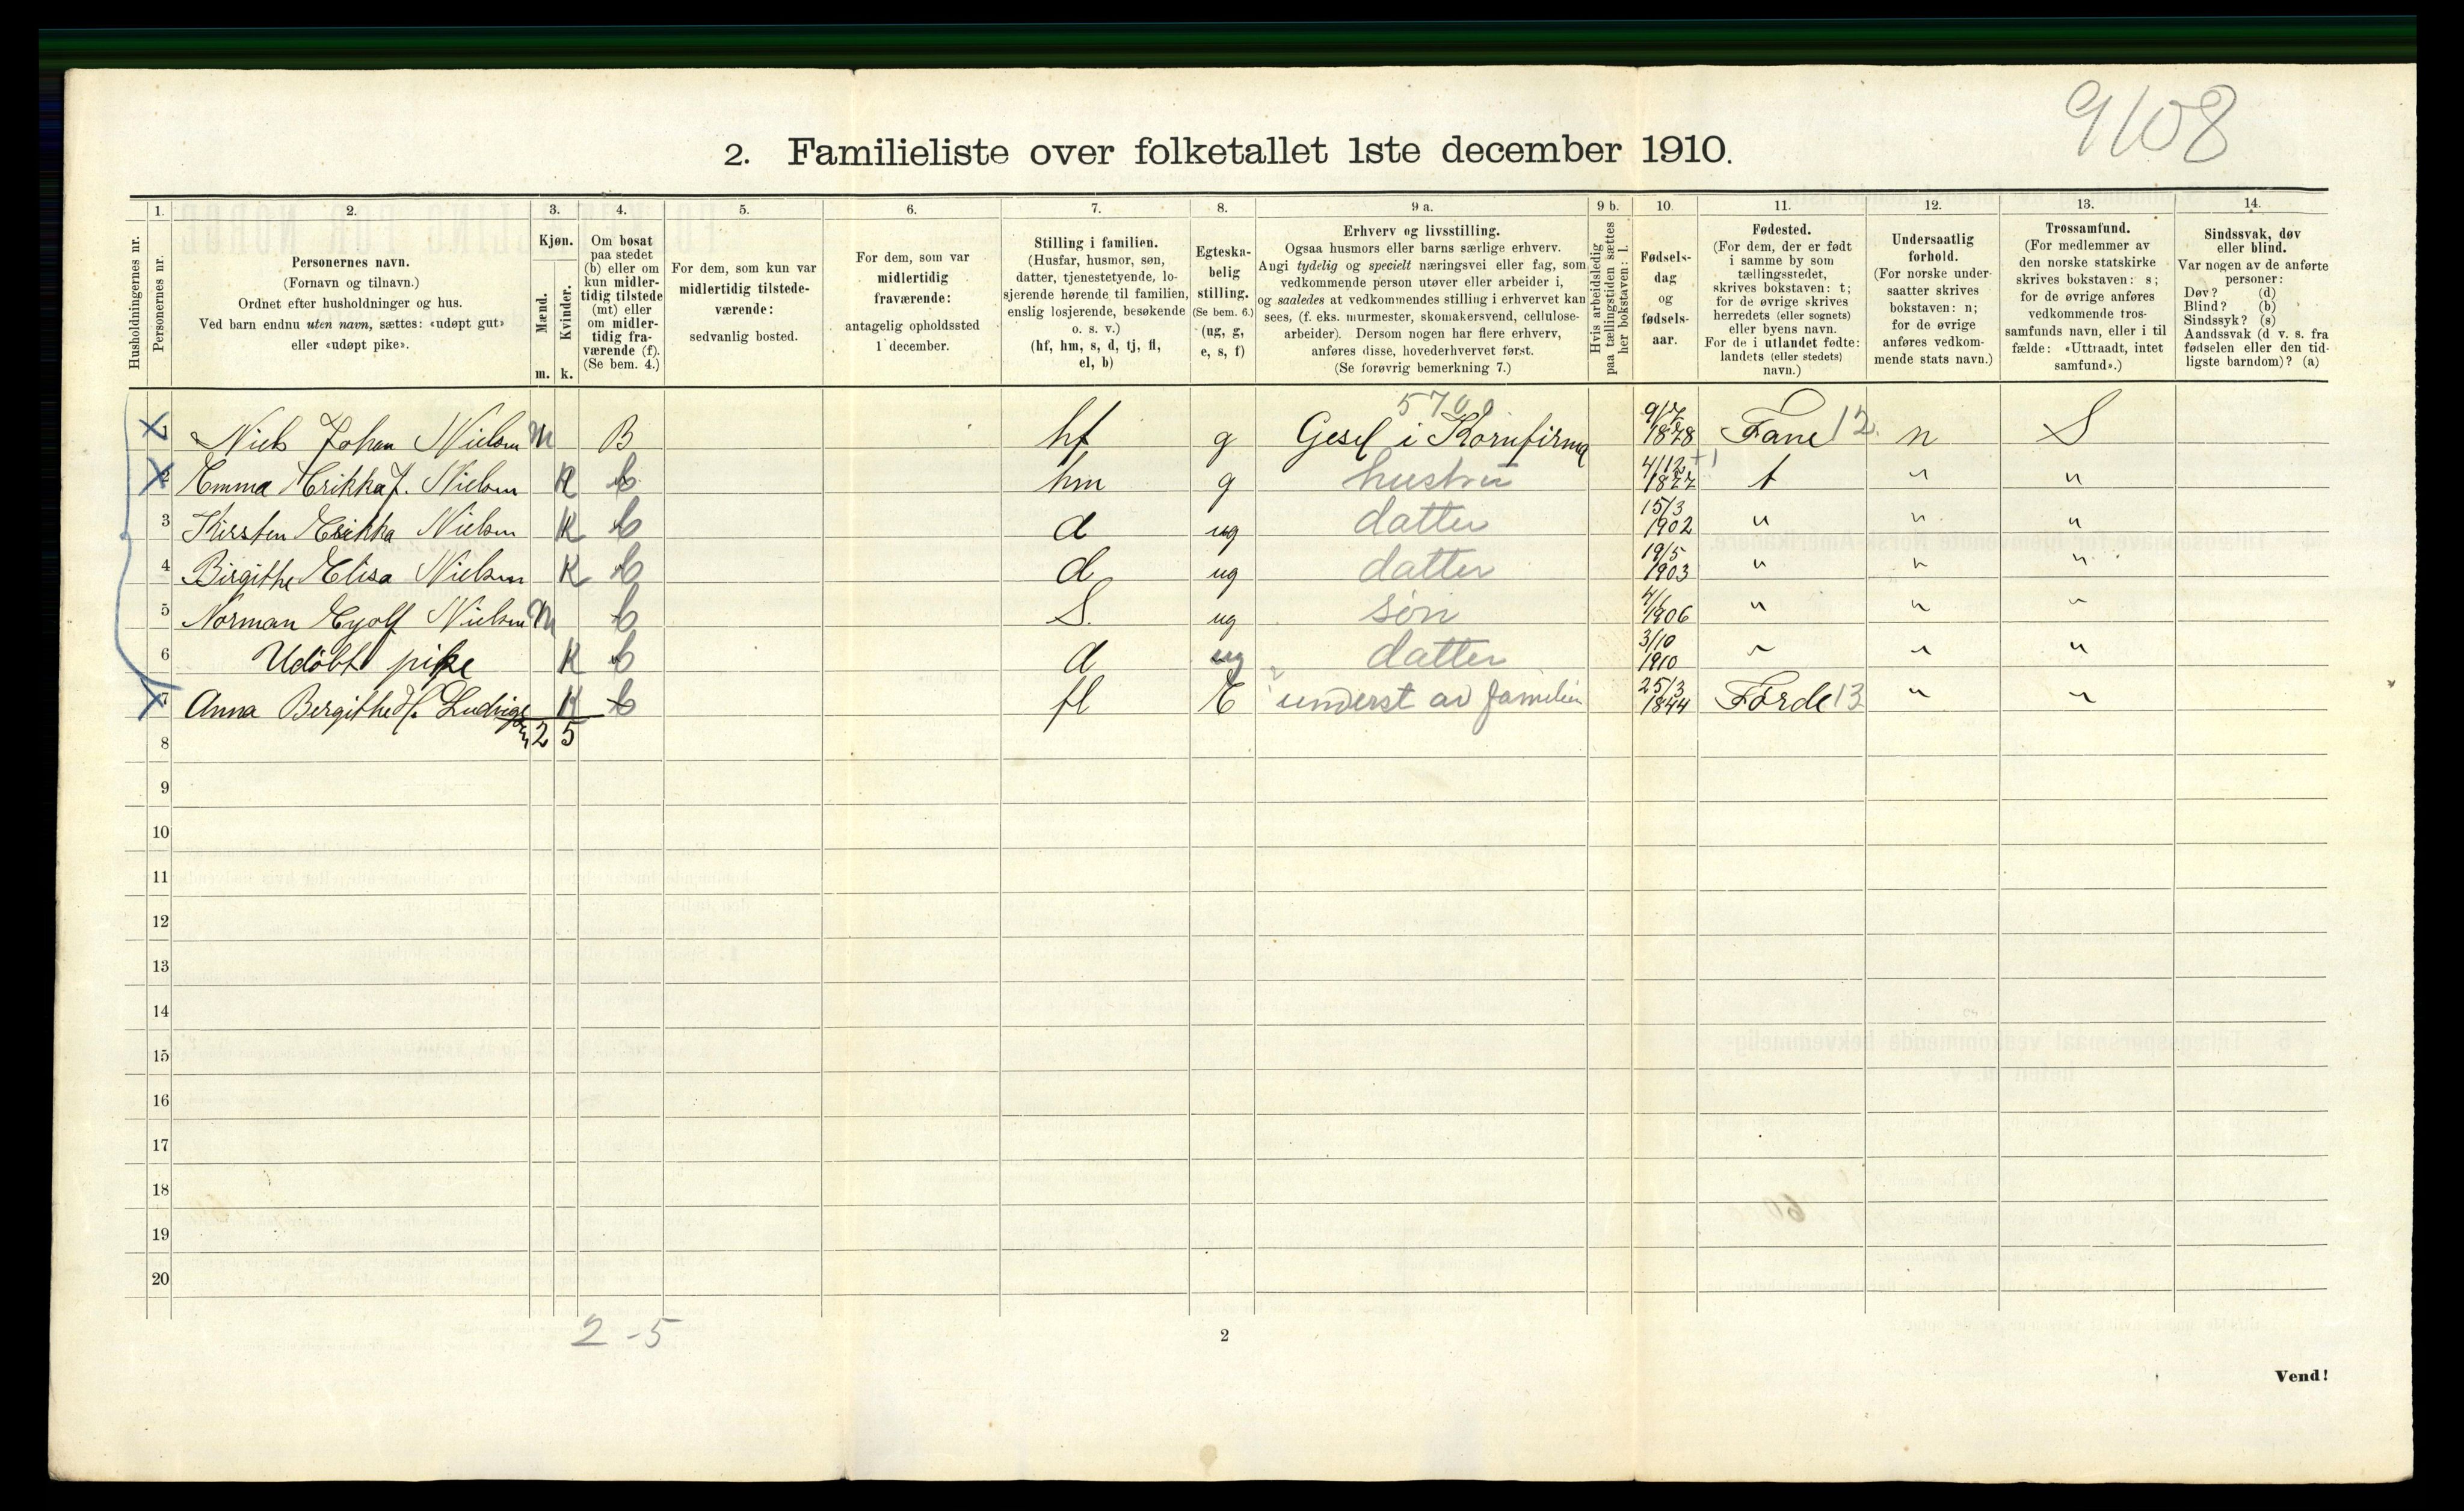 9108
2. Familieliste over folketallet 1ste december 1910.
1. 2. 3. 4. 5. 6. 7. 8. 9 a. 9 b. 10. 11. 12. 13. 14.
Husholdningernes nr.
Personernes nr.
Personernes navn.
(Fornavn og tilnavn.)
Ordnet efter husholdninger og hus.
Ved barn endnu uten navn, sættes: «udøpt gut»
eller «udøpt pike».
Kjøn.
Mænd.
Kvinder.
m. k.
Om bosat
paa stedet
(b) eller om
kun midler-
tidig tilstede
(mt) eller
om midler-
tidig fra-
værende (f).
(Se bem. 4.)
For dem, som kun var
midlertidig tilstede-
værende:
sedvanlig bosted.
For dem, som var
midlertidig
fraværende:
antagelig opholdssted
1 december.
Stilling i familien.
(Husfar, husmor, søn,
datter, tjenestetyende, lo-
sjerende hørende til familien,
enslig losjerende, besøkende
o. s. v.)
(hf, hm, s, d, tj, fl,
el, b)
Egteska-
belig
stilling.
(Se bem. 6.)
(ug, g,
e, s, f)
Erhverv og livsstilling.
Ogsaa husmors eller barns særlige erhverv.
Angi tydelig og specielt næringsvei eller fag, som
vedkommende person utøver eller arbeider i,
og saaledes at vedkommendes stilling i erhvervet kan
sees, (f. eks. murmester, skomakersvend, cellulose-
arbeider). Dersom nogen har flere erhverv,
anføres disse, hovederhvervet først.
(Se forøvrig bemerkning 7.)
Hvis arbeidsledig
paa tællingstiden sættes
her bokstaven: l.
Fødsels-
dag
og
fødsels-
aar.
Fødested.
(For dem, der er født
i samme by som
tællingsstedet,
skrives bokstaven: t;
for de øvrige skrives
herredets (eller sognets)
eller byens navn.
For de i utlandet fødte:
landets (eller stedets)
navn.)
Undersaatlig
forhold.
(For norske under-
saatter skrives
bokstaven: n;
for de øvrige
anføres vedkom-
mende stats navn.)
Trossamfund.
(For medlemmer av
den norske statskirke
skrives bokstaven: s;
for de øvrige anføres
vedkommende tros-
samfunds navn, eller i til
fælde: «Uttraadt, intet
samfund».)
Sindssvak, døv
eller blind.
Var nogen av de anførte
personer:
Døv? (d)
Blind? (b)
Sindssyk? (s)
Aandssvak (d v. s. fra
fødselen eller den tid-
ligste barndom)? (a)
5700
1 Niels Johan Nielsen m B hf g Gesel i Kornfirma 1878 Fane 12 n S
2 Emma Erikka J. Nielsen K b hm g hustru 4/12 1877 t " "
3 Kirsten Erikka Nielsen K b d ug datter 15/3 1902 " " "
4 Birgithe Elisa Nielsen K b d ug datter 19/5 1903 " " "
5 Norman Eyolf Nielsen m b S. ug søn 1906 " " "
6 Udöbt pike K b d ug datter 3/10 1910 " " "
7 Anna Bergithe H. Ludvigsen K b fl E underst av familien 25/3 1844 Förde 13 " "
8 2 5
9
10
11
12
13
14
15
16
17
18
19
20
2 - 5
2
Vend!